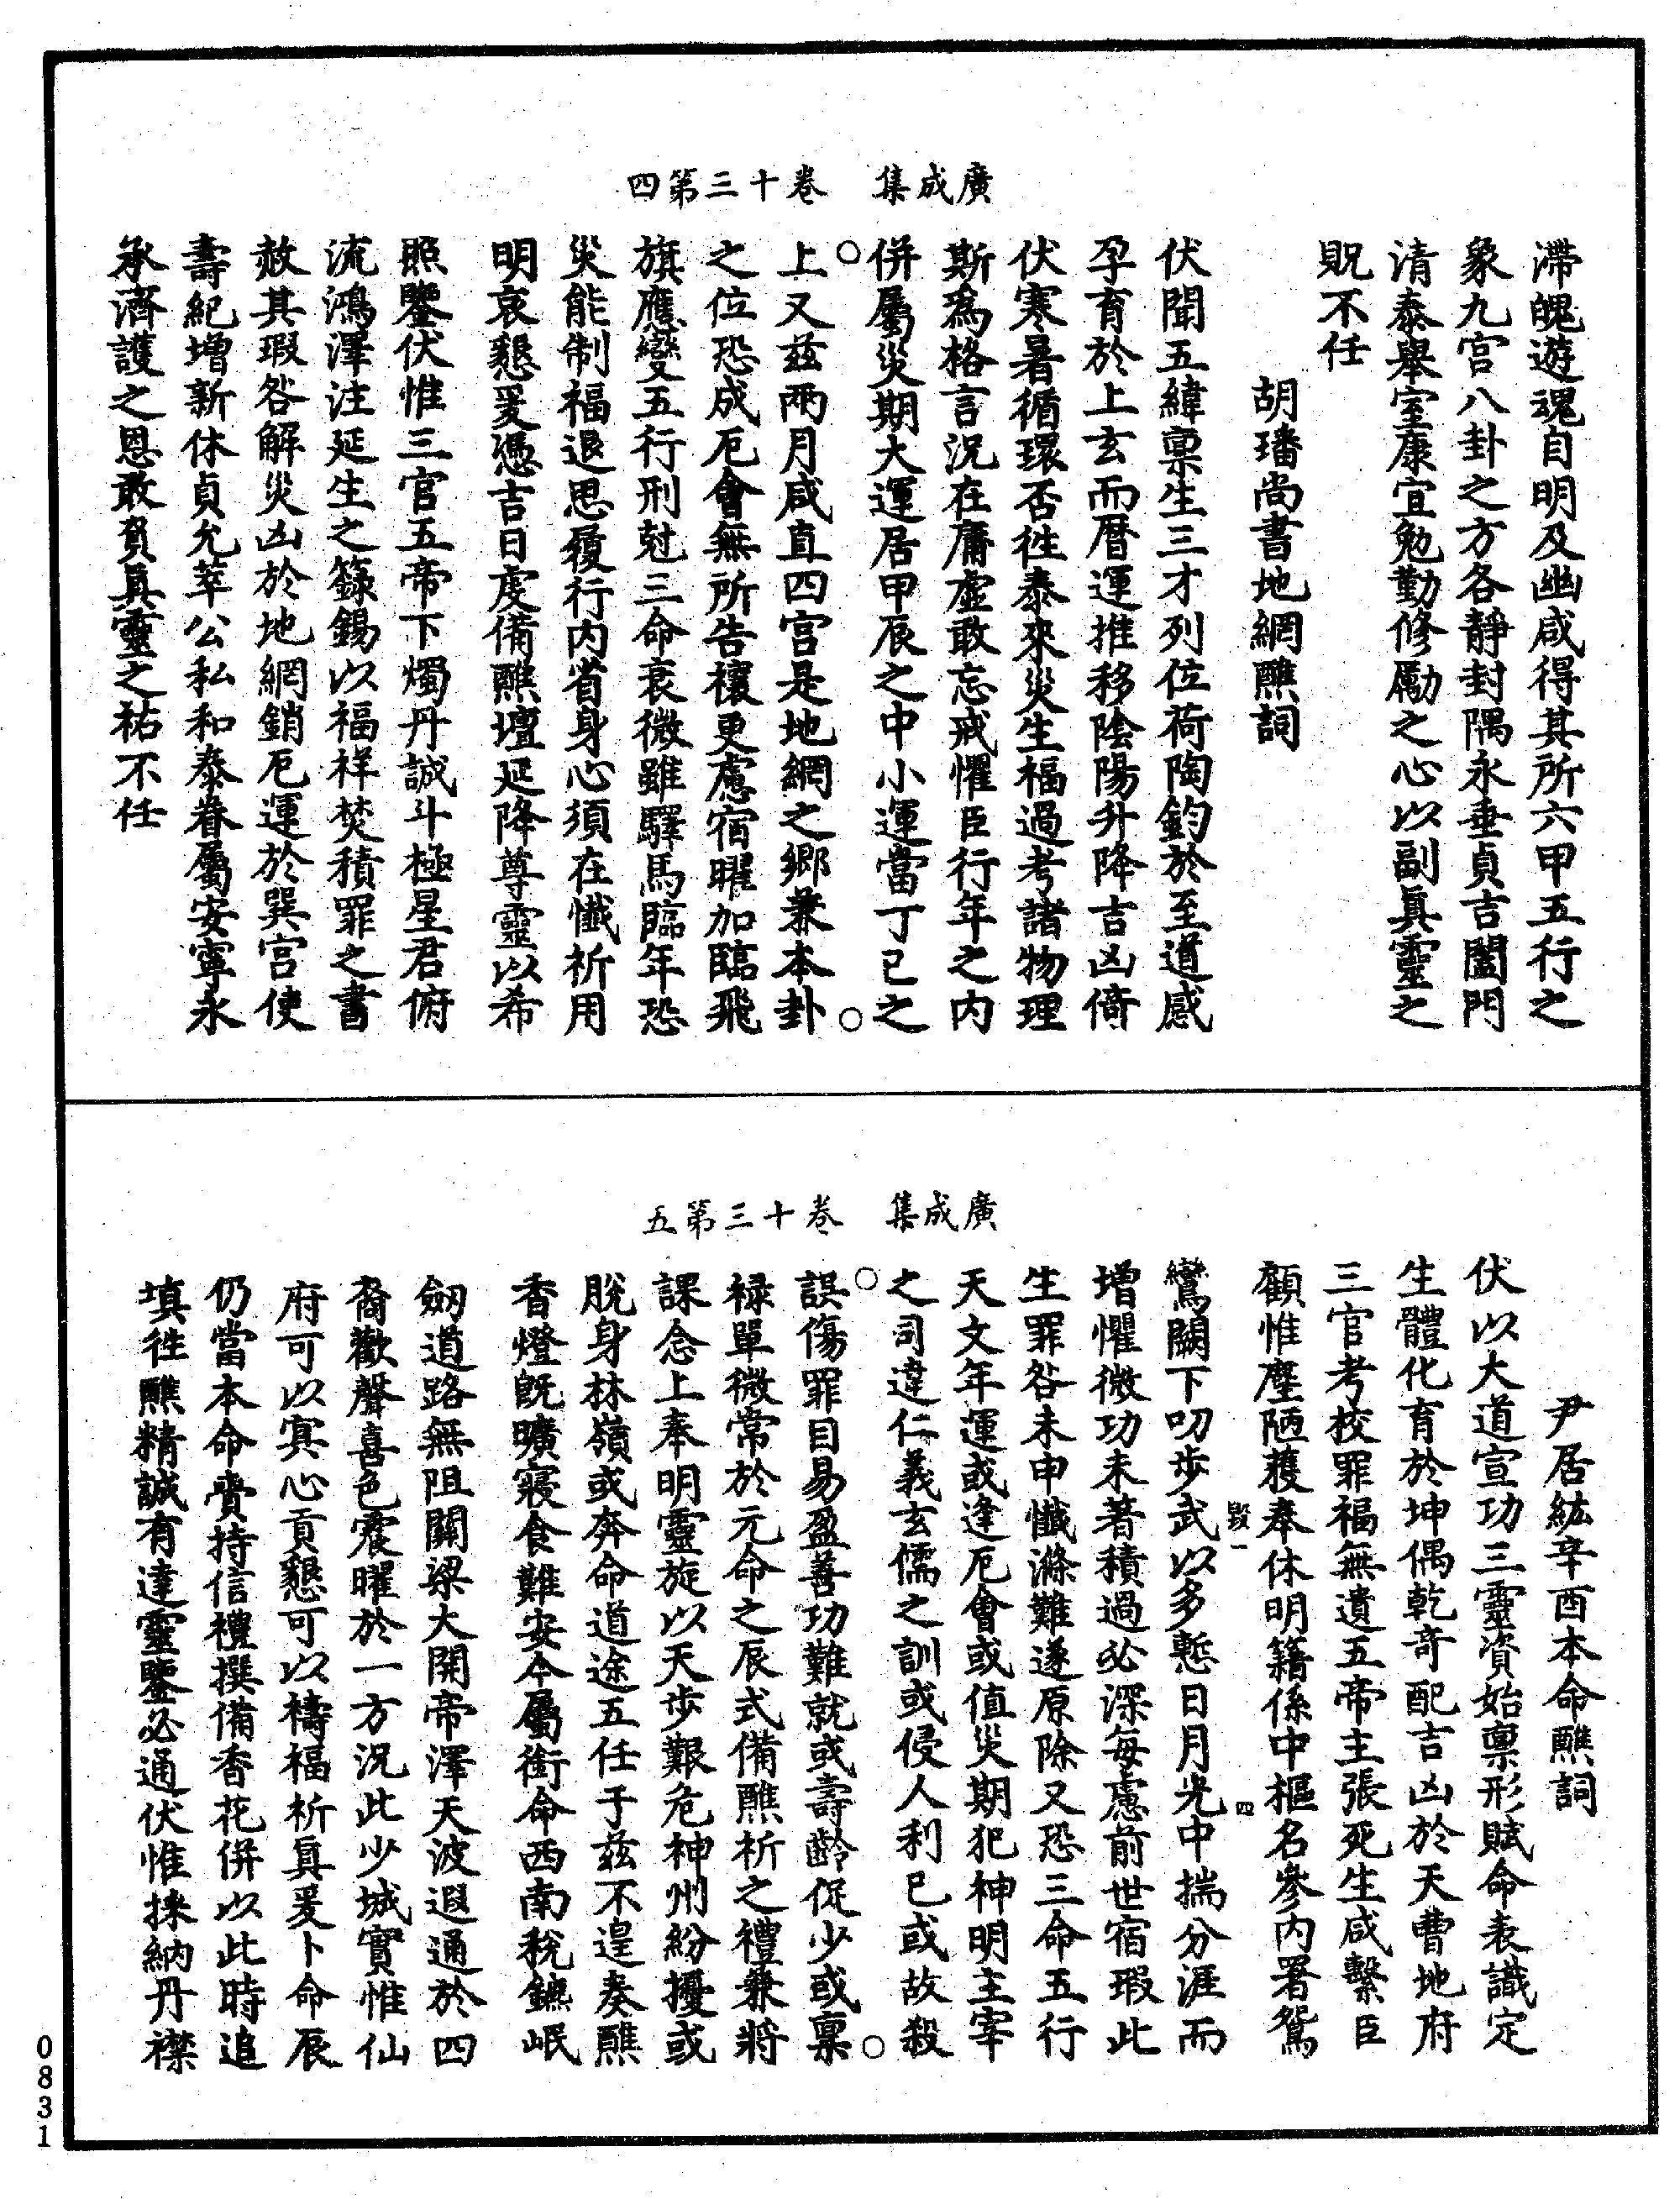 廣成集　卷十三第四
滯魄遊魂自明及幽咸得其所六甲五行之
象九宮八卦之方各靜封隅永垂貞吉闔門
清泰舉室康宜勉勤修勵之心以副真靈之
貺不任
胡璠尚書地網醮詞
伏聞五緯稟生三才列位荷陶鈞於至道感
孕育於上玄而曆運推移陰陽升降吉凶倚
伏寒暑循環否往泰來災生福過考諸物理
斯為格言況在庸虛敢忘戒懼臣行年之內
併屬災期大運居甲辰之中小運當丁巳之
上又茲兩月咸直四宮是地網之鄉兼本卦
之位恐成厄會無所告禳更慮宿曜加臨飛
旗應變五行刑尅三命衰微雖驛馬臨年恐
災能制福退思履行內省身心須在懺祈用
明哀懇爰憑吉日虔備醮壇延降尊靈以希
照鑒伏惟三官五帝下燭丹誠斗極星君俯
流鴻澤注延生之籙錫以福祥焚積罪之書
赦其瑕咎解災凶於地網銷厄運於巽宮使
壽紀增新休貞允萃公私和泰眷屬安寧永
承濟護之恩敢負真靈之祐不任
廣成集　卷十三第五
尹居紘辛酉本命醮詞
伏以大道宣功三靈資始稟形賦命表識定
生體化育於坤偶乾奇配吉凶於天曹地府
三官考校罪福無遺五帝主張死生咸繫臣
顧惟塵陋獲奉休明籍係中樞名參內署鴛
毀一　四
鸞闕下叨步武以多慙日月光中揣分涯而
增懼微功未著積過必深每慮前世宿瑕此
生罪咎未申懺滌難遂原除又恐三命五行
天文年運或逢厄會或值災期犯神明主宰
之司違仁義玄儒之訓或侵人利已或故殺
誤傷罪目易盈善功難就或壽齡促少或稟
祿單微常於元命之辰式備醮祈之禮兼將
課念上奉明靈旋以天步艱危神州紛擾或
脫身林嶺或奔命道途五任于茲不遑奏醮
香燈既曠寢食難安今屬銜命西南稅鑣岷
劒道路無阻關梁大開帝澤天波遐通於四
裔歡聲喜色震曜於一方況此少城實惟仙
府可以寘心貢懇可以禱福祈真爰卜命辰
仍當本命賫持信禮撰備香花併以此時追
填往醮精誠有達靈鑒必通伏惟採納丹襟
0831